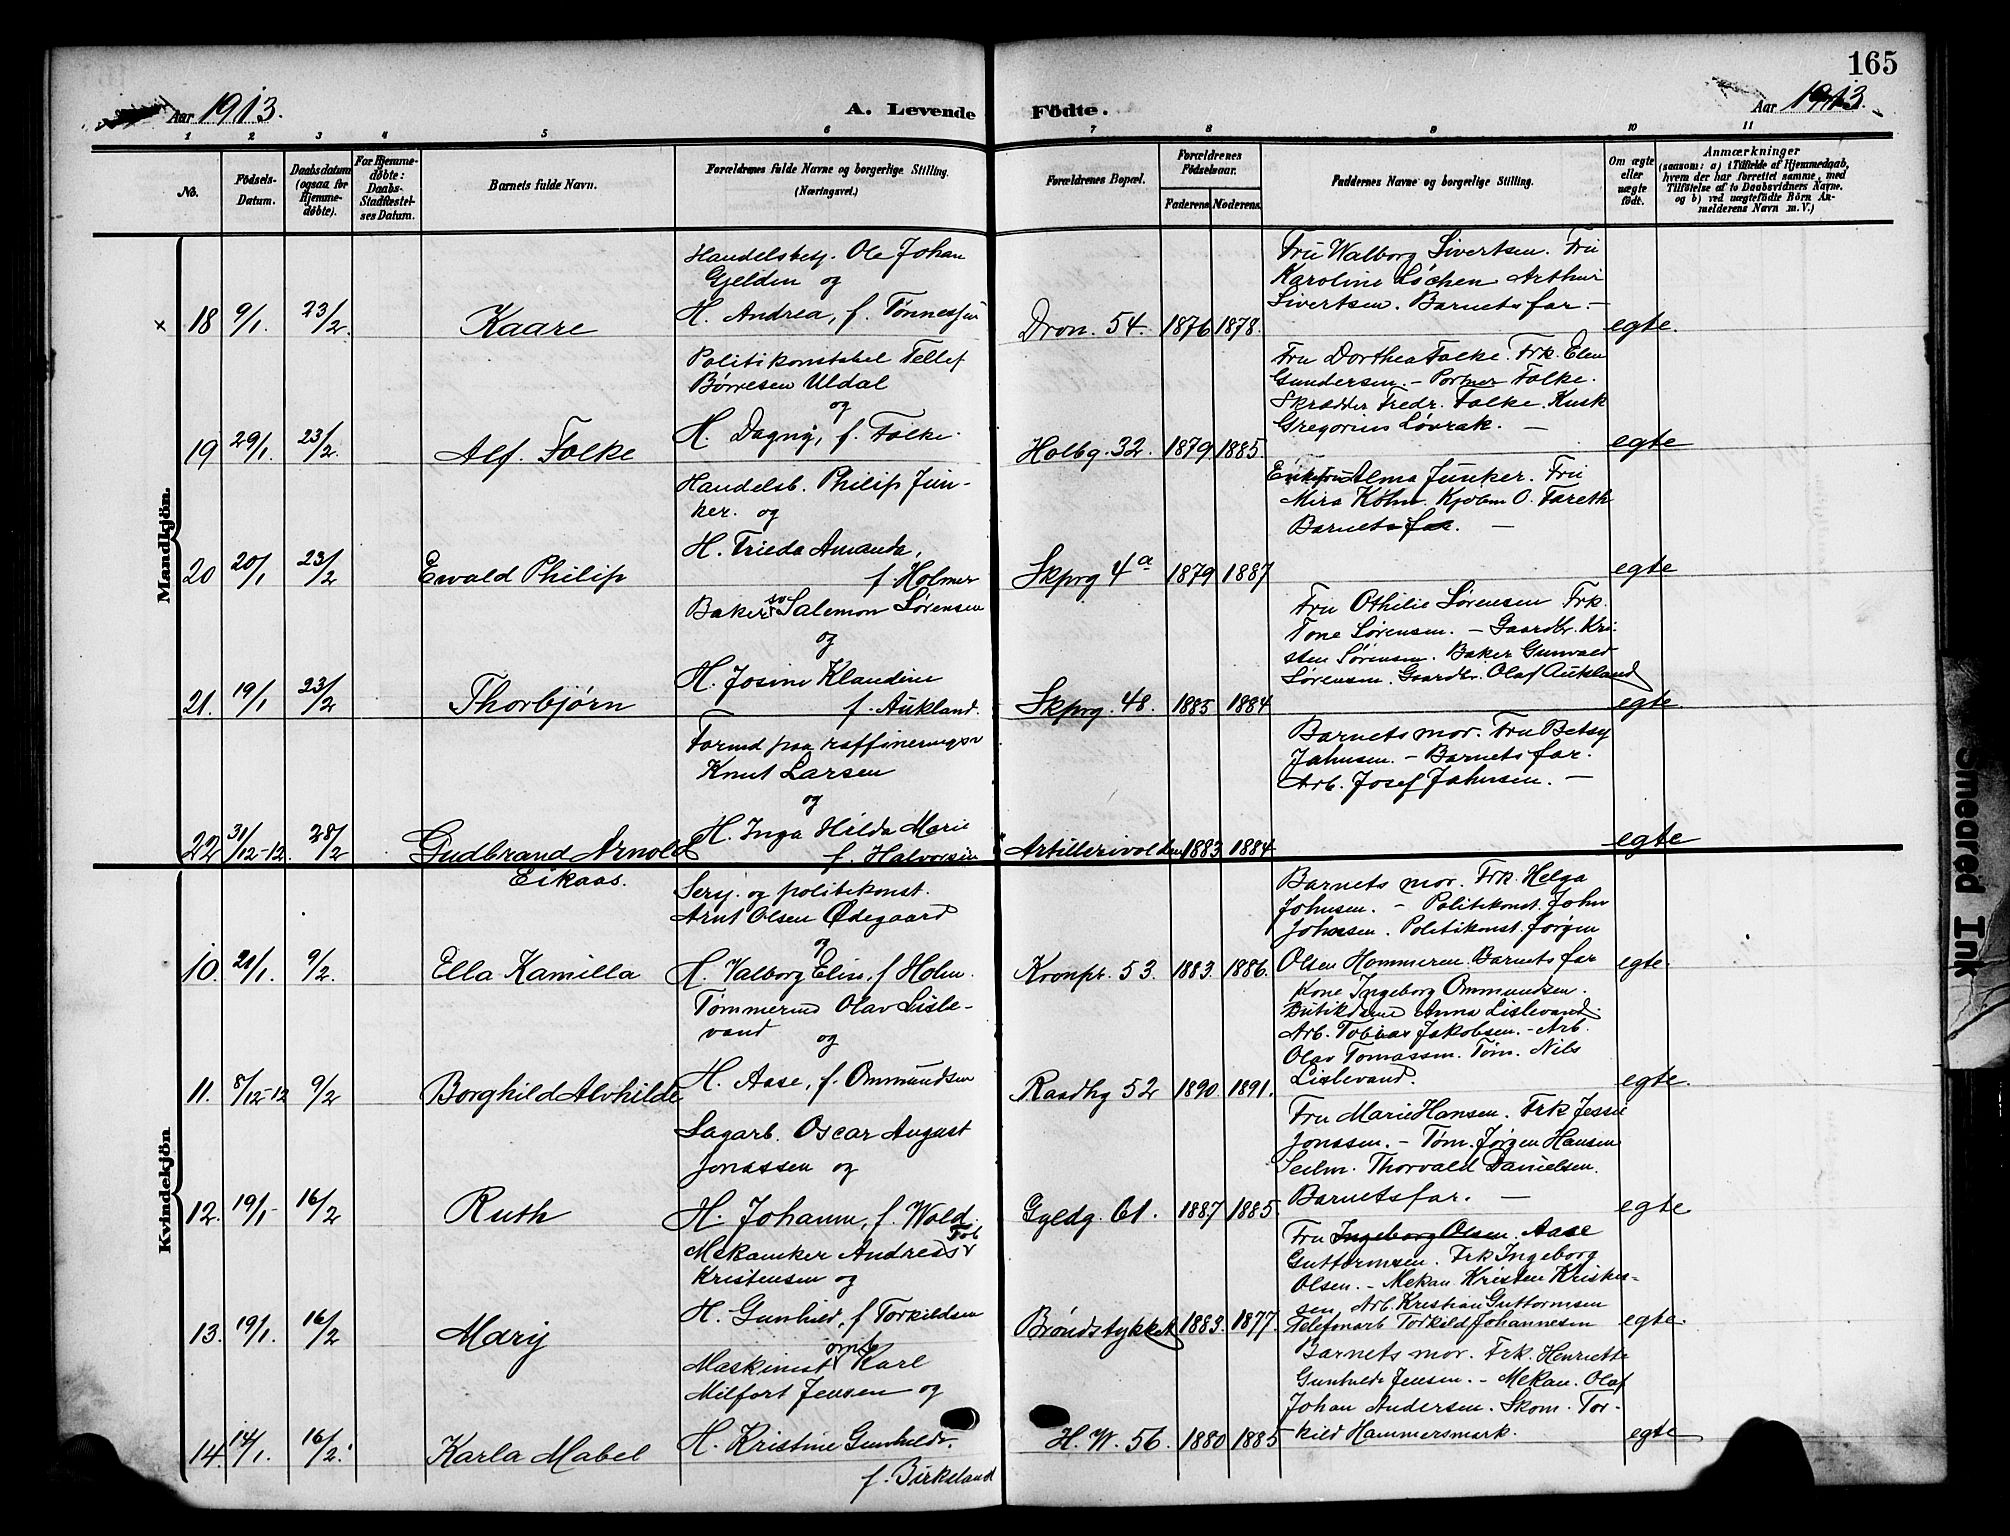 165
Aar 1913. A. Levende Födte. Aar 1913.
1 2 3 4 5 6 7 8 9 10 11
No.
Födsels-
Datum.
Daabsdatum
(ogsaa for
Hjemme-
døbte).
For Hjemme-
døbte:
Daabs-
Stadfæstel-
ses Datum.
Barnets fulde Navn.
Forældrenes fulde Navne og borgerlige Stilling.
(Næringsvei.)
Forældrenes Bopæl.
Forældrenes
Födselsaar.
Faderens Moderens.
Faddernes Navne og borgerlige Stilling.
Om ægte
eller
uægte
født.
Anmærkninger
(saasom: a) i Tilfælde af Hjemmedaab,
hvem der har forrettet samme, med
Tilföielse af to Daabsvidners Navne,
og b) ved uægtefödte Börn An-
melderens Navn m. V.)
Mandkjön.
Handelsbest. Ole Johan
Gjelden og
H. Andrea, f. Tønnessen
× 18 9/1. 23/2. Kaare
Dron. 54. 1876 1878.
Fru Walborg Sivertsen. Fru
Karoline Løchen Arthur
Sivertsen. Barnets far. —
egte.
Politikonstabel Tellef
Børresen Uldal
og
H. Dagny, f. Falke.
19 29/1. 23/2. Alf. Falke
Holbg. 32. 1879 1885.
Fru Dorthea Falke. Frk. Elen
Gundersen. – Portner Falke.
Skrædder Fredr. Falke. Kusk
Gregorius Løvrak. —
egte
Handelsb. Philip Jun-
ker. og
H. Frieda Amanda,
f. Holmer
20 20/1 23/2 Ewald Philip
Skprg 4a 1879 1887
Enkefru Alma Junker. Fru
Mira Køhn. Kjøbm O. Fareth
Barnets far. —
egte
Baker sv Salemon Sørensen
og
H. Josine Klaudine
f. Aukland.
21. 19/1 23/2 Thorbjørn
Skprg. 48. 1885 1884
Fru Othilie Sørensen Frk.
Tone Sørensen. – Gaardbr. Kri-
sten Sørensen. Baker Gunvald
Sørensen. Gaardbr. Olaf Aukland
egte.
Formd paa raffineringsv
Knut Larsen
og
H. Inga Hilda Marie
f. Halvorsen
22 31/12-12. 28/2 Gudbrand Arnold
Eikaas.
Artillerivolden 1883 1884
Barnets mor. Fru Betsy
Jahnsen. – Barnets far.
Arb. Josef Jahnsen. —
egte
Kvindekjön
Serj. og politikonst.
Arnt Olsen Ødegaard
og
H. Valborg Elin, f. Holm.
10. 21/1. 9/2. Ella Kamilla
Kronpr. 53. 1883. 1886.
Barnets mor. Frk. Helga
Johnsen. – Politikonst. John
Johnsen. Politikonst. Jørgen
Olsen Hommeren. Barnets far
egte.
Tømmermd Olav Lisle-
vand
og
H. Aase, f. Ommundsen
11. 8/12-12 9/2 Borghild Alvhilde
Raadhg 52 1890 1891.
Kone Ingeborg Ommundsen.
Butikdame Anna Lislevand.
Arb. Tobias Jakobsen. – Arb.
Olav Tomassen. Tøm. Nils
Lislevand.
egte.
Lagarb. Oscar August
Jonassen og
H. Johanne, f. Wold.
12. 19/1- 16/2 Ruth
Gyldg. 61. 1887 1885.
Fru Marie Hansen. Frk Jessie
Jonssen. – Tøm. Jørgen Hansen
Seilm. Thorvald Danielsen.
Barnets far. —
egte
Mekaniker Andreas Tob
Kristensen og
H. Gunhild, f Torkildsen
13. 19/1. 16/2 Mary
Brøndstykket 1883. 1877.
Fru Ingeborg Olsen. Aase
Guttormsen. Frk Ingeborg
Olsen. – Mekan Kristen Kristen-
sen, Arb. Kristian Guttormsen
Telefonarb Torkild Johannesen
egte.
Maskinist Karl
Milfort Jensen og
H. Kristine Gunhilde.
f. Birkeland
14. 14/1. 16/2. Karla Mabel
H. W. 56. 1880 1885
Barnets mor. Frk. Henriette
Gunhilde Jensen. – Mekan. Olaf
Johan Andersen. Skom. Tor-
kild Hammersmark.
egte
Smeared Ink